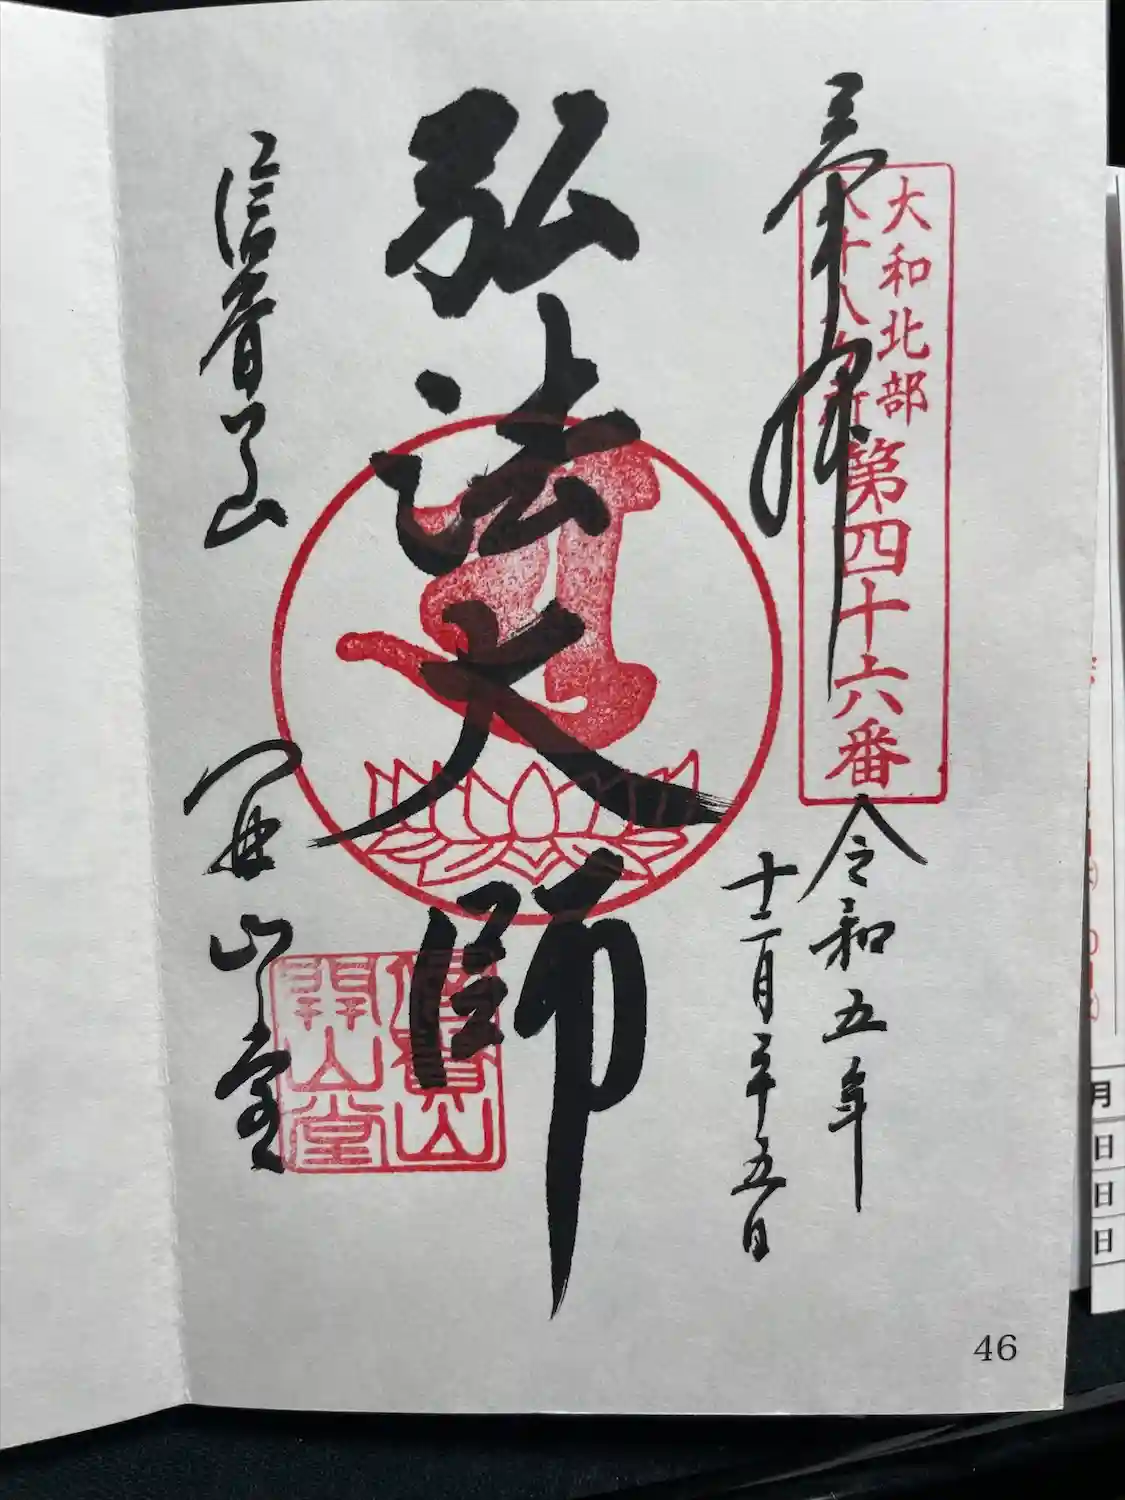 奉拝
大和北部
八十八ヶ所
第四十六番
令和五年
十二月二十五日
弘法大師
信貴山
開山堂
信貴山
開山堂
46
月
日
日
日